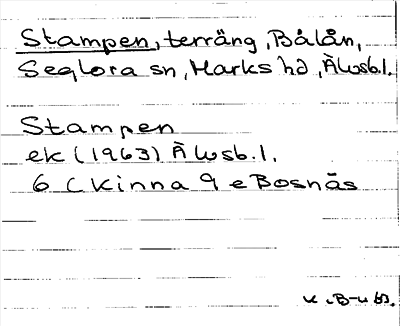 Stampen, terräng, Bålån,
Seglora sn, Marks hd, Älvsb.l.
Stampen
ek (1963) Älvsb.l.
6 C Kinna 9 e Bosnäs